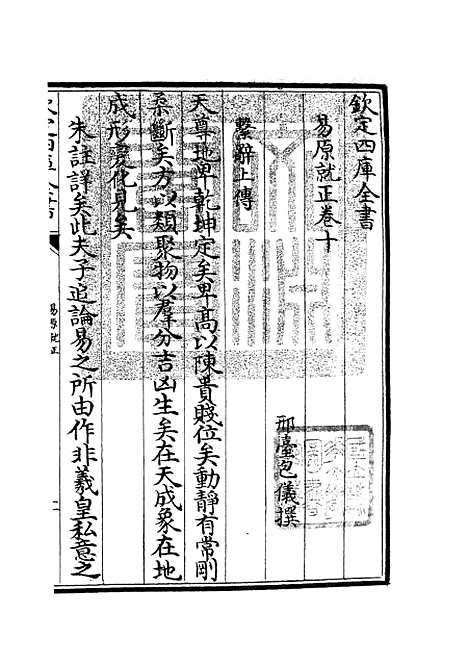 欽定四庫全書
易原就正卷十
邢臺包儀撰
繫辭上傳
天尊地卑乾坤定矣卑高以陳貴賤位矣動靜有常剛
柔斷矣方以類聚物以羣分吉凶生矣在天成象在地
成形變化見矣
朱註詳矣此夫子追論易之所由作非羲皇私意之
欽定四庫全書
易原就正